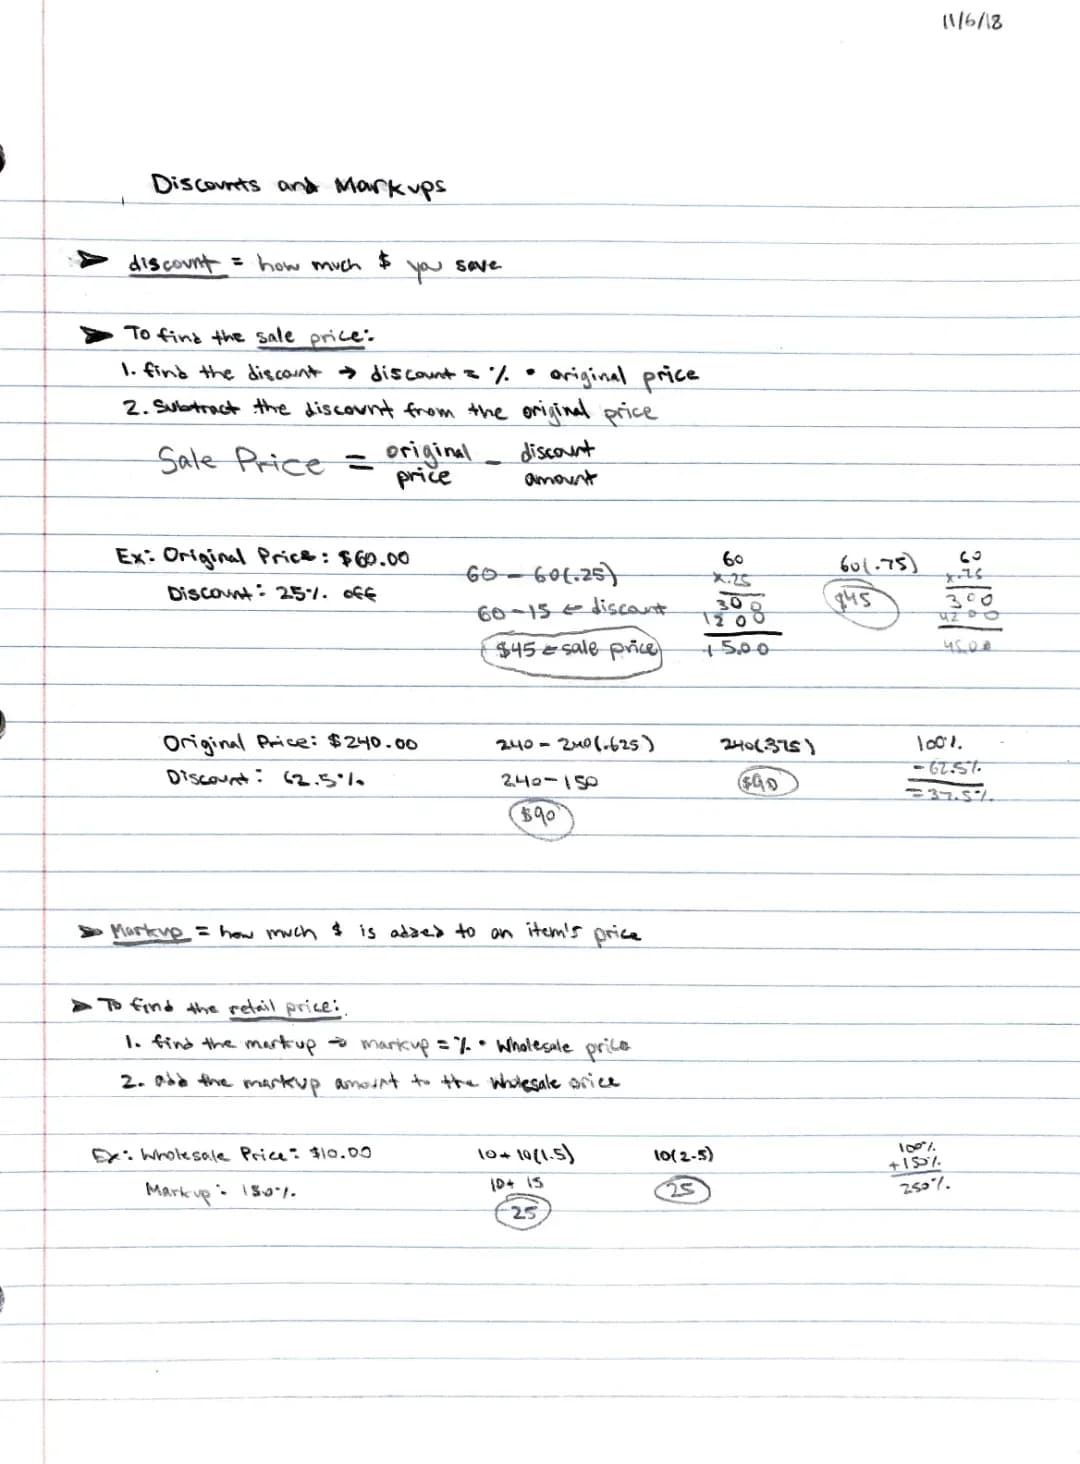 11/6/18
Discounts and Markups
➤ discount = how much $ you save
➤ To find the sale price:
1. find the discount → discount = % • original price
2. Subtract the discount from the original price
Sale Price = original price - discount amount
Ex: Original Price: $60.00
Discount: 25% off
60 - 60(.25)
60 - 15 ← discount
$45 ← sale price
60
x.25
300
1200
15.00
60(.75)
$45
60
x.75
300
4200
45.00
Original Price: $240.00
Discount: 62.5%
240 - 240(.625)
240 - 150
$90
240(.375)
$90
100%
- 62.5%
= 37.5%
➤ Markup = how much $ is added to an item's price
➤ To find the retail price:
1. find the markup → markup = % • Wholesale price
2. add the markup amount to the Wholesale price
Ex: Wholesale Price: $10.00
Markup: 150%
10 + 10(1.5)
10 + 15
25
10(2.5)
25
100%
+ 150%
250%